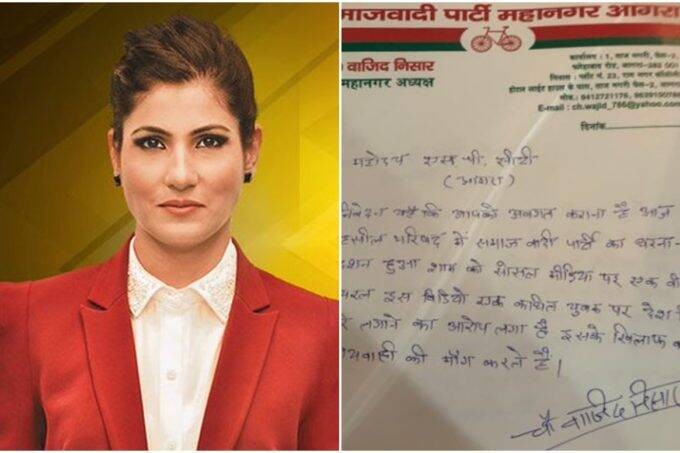 माजवादी पार्टी महानगर आगरा
वाजिद निसार
महानगर अध्यक्ष
कार्यालय : 1, ताज नगरी, फेस-2,
फतेहाबाद रोड, आगरा-282 001
निवास : प्लॉट नं. 23, राम नगर
के पास, ताज नगरी फेस-2,
मोब.: 9412721176,
E-mail : ch.wajid_786@yahoo.com
दिनांक
महोदय एस. पी. सीटी
(आगरा)
निवेदन यह है कि आपको अवगत कराना है आज
हसील परिषद में समाजवादी पार्टी का धरना-
शन हुआ शाम को सोसल मीडिया पर एक वी
यरल इस विडियो एक कथित युवक पर देश
रे लगाने का आरोप लगा है इसके खिलाफ क
यवाही की माँग करते है।
चौ वाजिद निसार